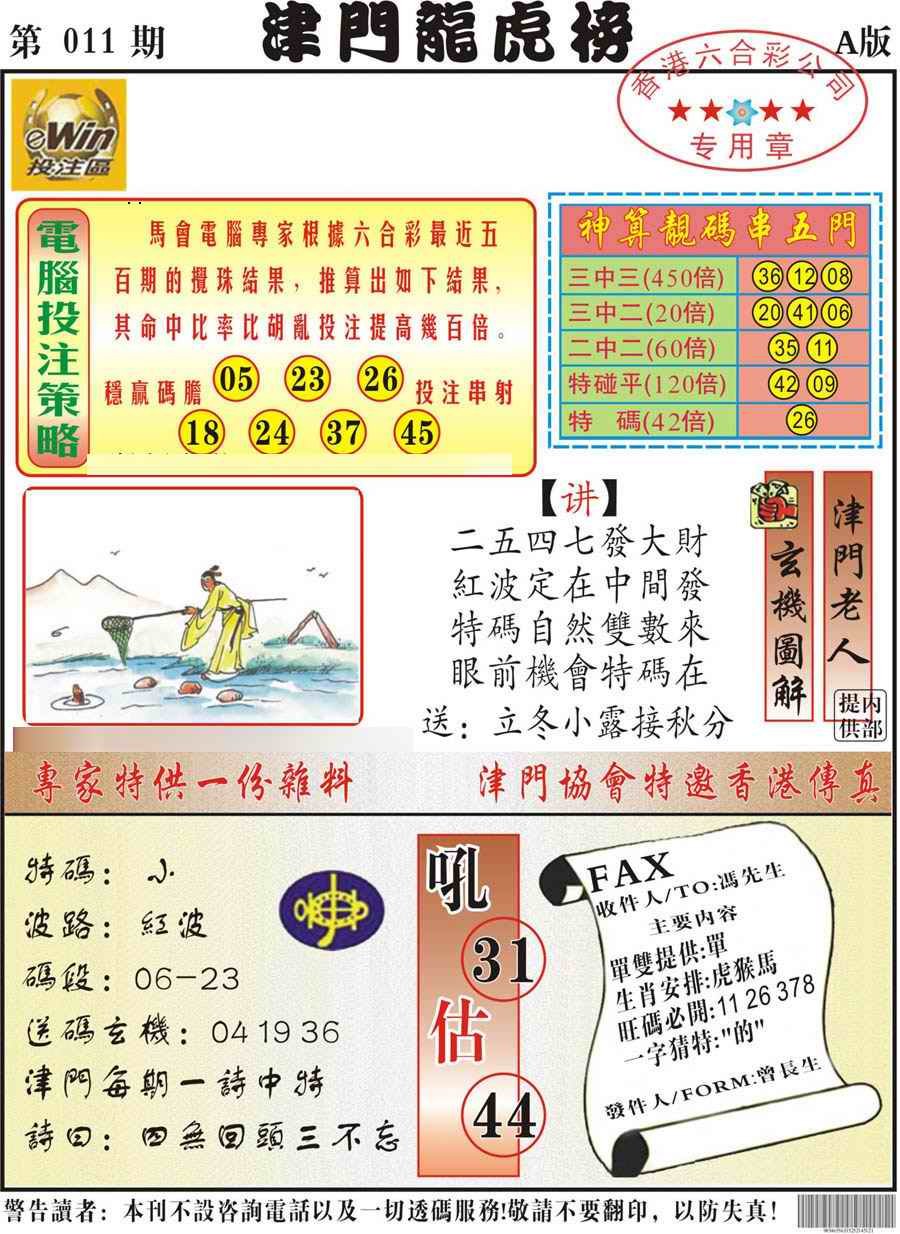 第 011 期
津門龍虎榜
A版
香港六合彩公司
专用章
eWin
投注區
電腦投注策略
馬會電腦專家根據六合彩最近五
百期的攪珠結果，推算出如下結果，
其命中比率比胡亂投注提高幾百倍。
穩贏碼膽 05 23 26 投注串射
18 24 37 45
神算靚碼串五門
三中三(450倍) 36 12 08
三中二(20倍) 20 41 06
二中二(60倍) 35 11
特碰平(120倍) 42 09
特 碼(42倍) 26
【讲】
二五四七發大財
紅波定在中間發
特碼自然雙數來
眼前機會特碼在
送：立冬小露接秋分
玄機圖解
津門老人
内部提供
專家特供一份雜料
津門協會特邀香港傳真
特碼：小
波路：紅波
碼段：06-23
送碼玄機：04 19 36
津門每期一詩中特
詩曰：四無回頭三不忘
吼
31
估
44
FAX
收件人/TO:馮先生
主要内容
單雙提供:單
生肖安排:虎猴馬
旺碼必開:11 26 378
一字猜特:"的"
發件人/FORM:曾長生
警告讀者：本刊不設咨詢電話以及一切透碼服務!敬請不要翻印，以防失真!